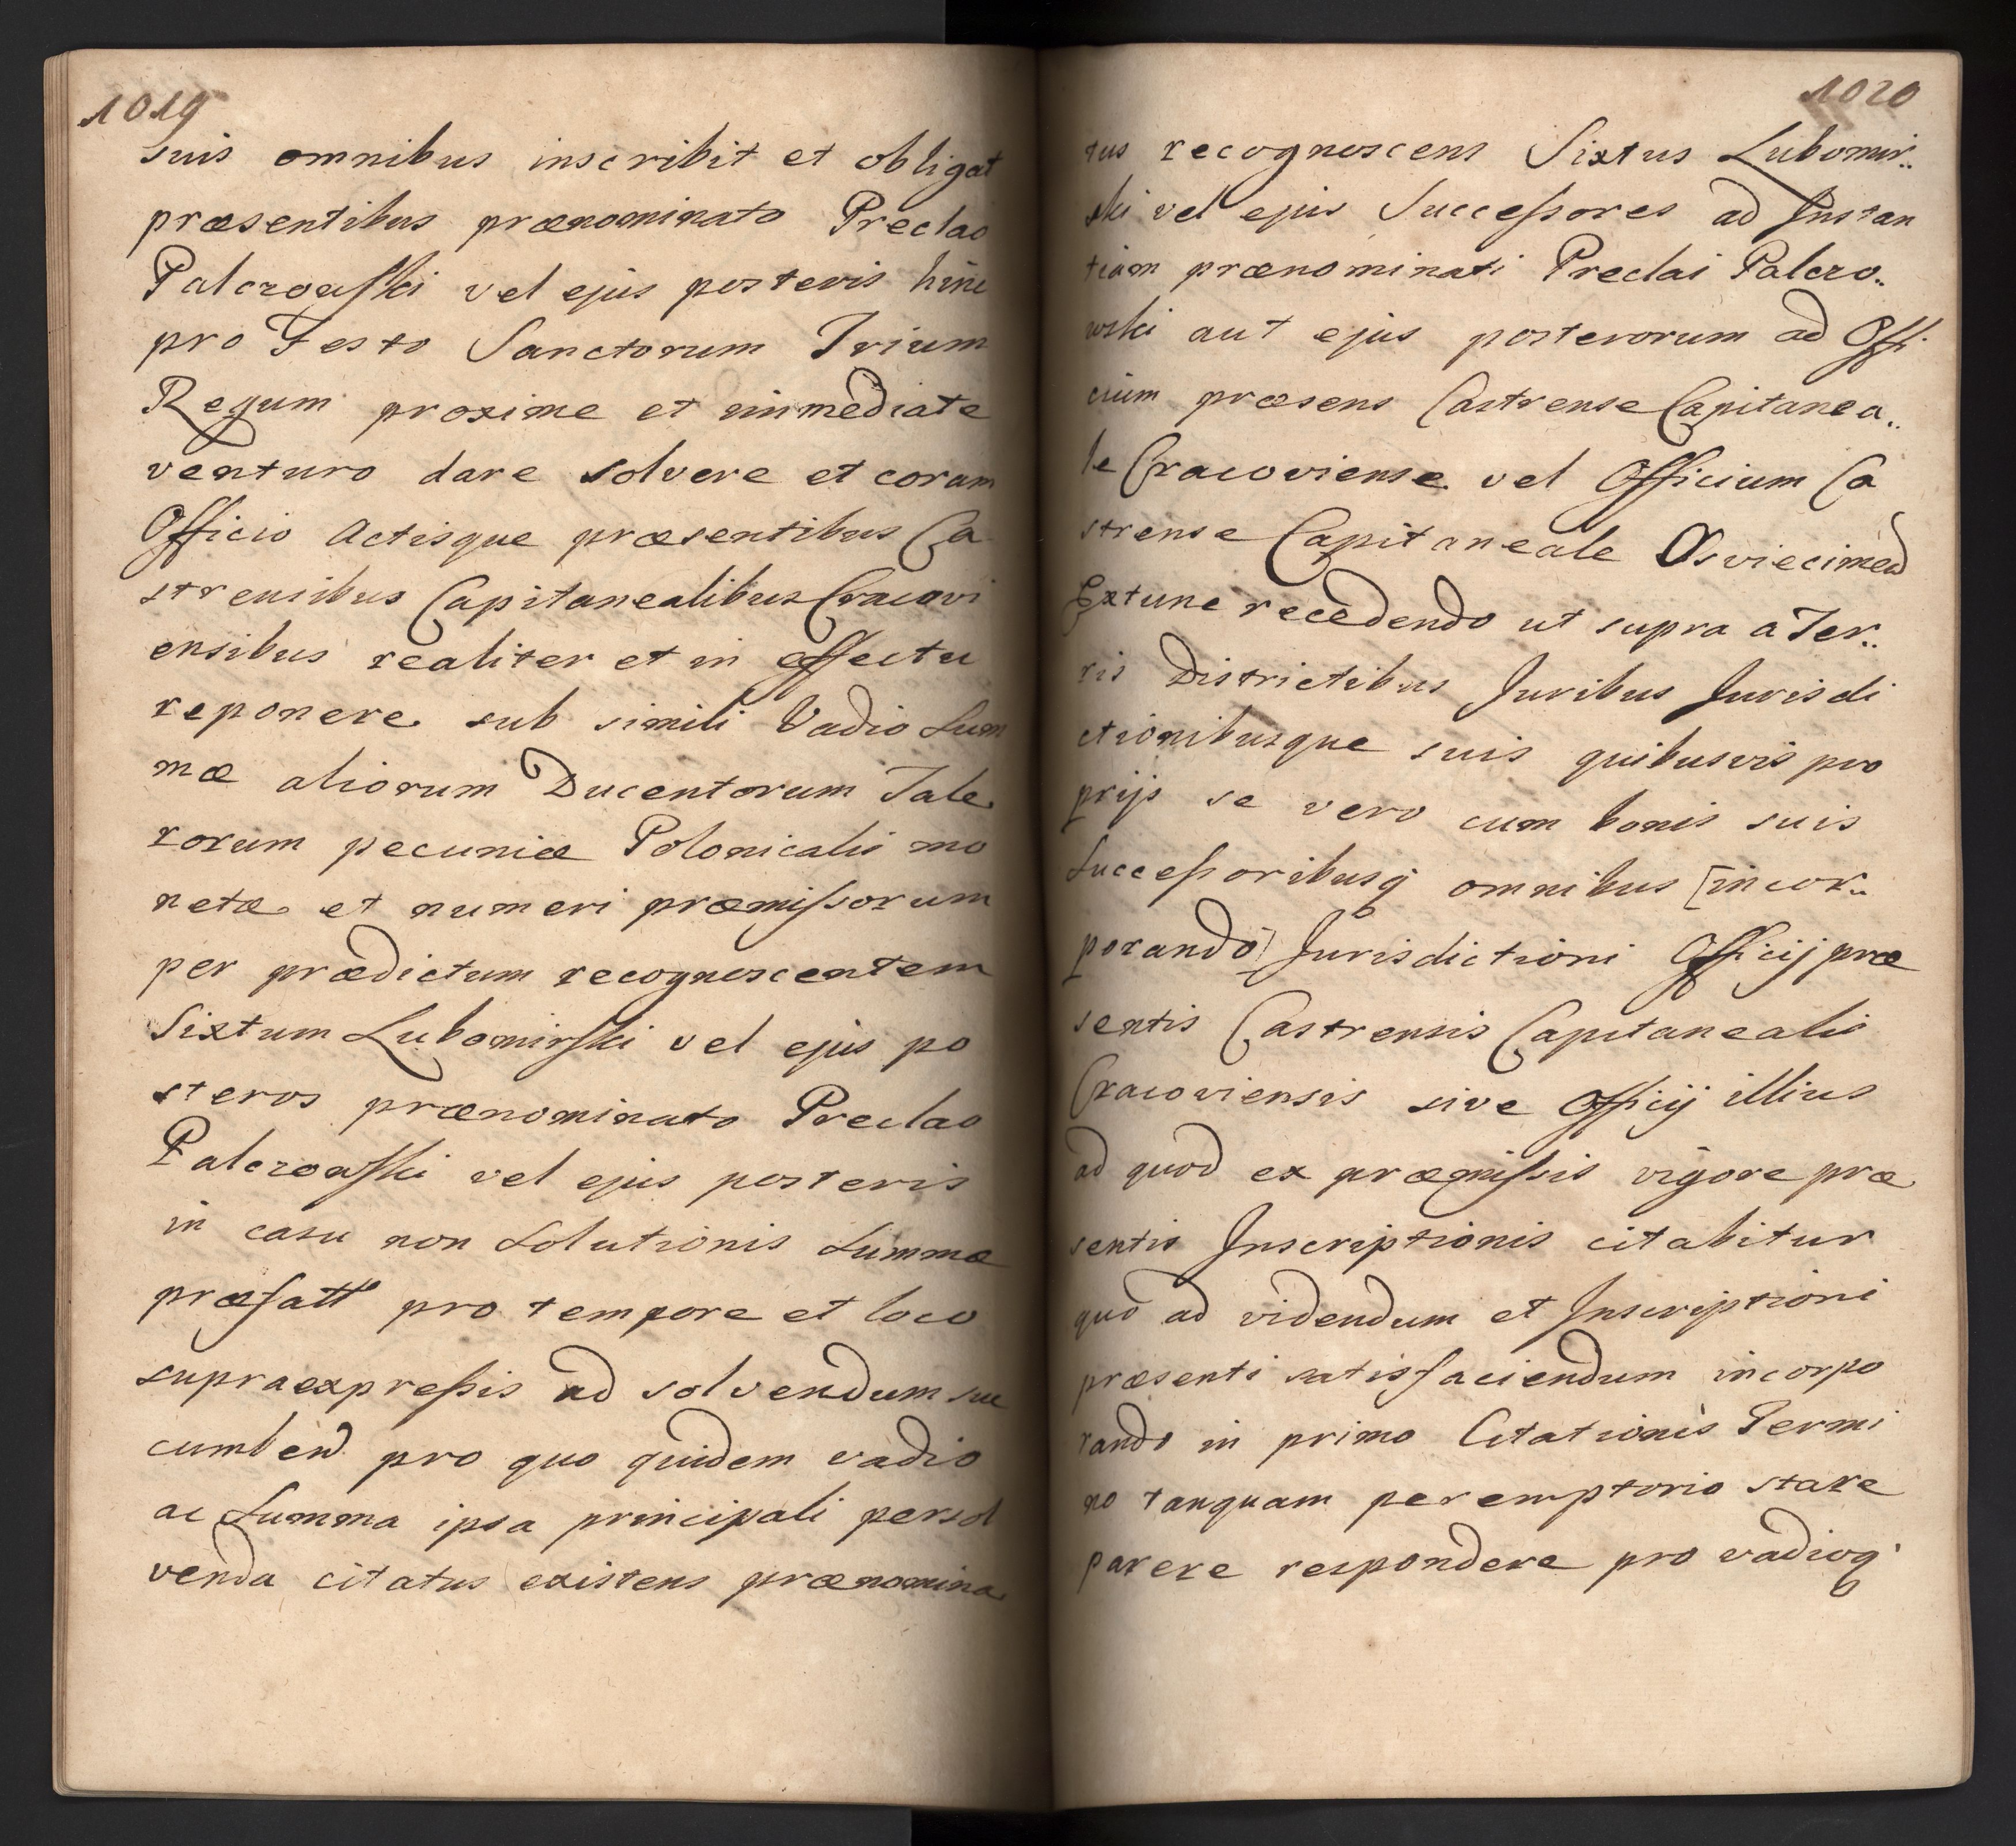 1019
suis omnibus inscribit et obligat
præsentibus prænominato Preclao
Palczowski vel ejus posteris hinc
pro Festo Sanctorum Trium
Regum proxime et immediate
venturo dare solvere et coram
Officio Actisque præsentibus Ca
strensibus Capitanealibus Cracovi
ensibus realiter et in effectu
reponere sub simili Vadio Sum
mæ aliorum Ducentorum Tale
rorum pecuniæ Polonicalis mo
netæ et numeri præmissorum
per prædictum recognoscentem
Sixtum Lubomirski vel ejus po
steros prænominato Preclao
Palczowski vel ejus posteris
in casu non Solutionis Summæ
præfatt pro tempore et loco
supraexpressis ad solvendum suc
cumben pro quo quidem vadio
ac Summa ipsa principali persol
venda citatus existens prænomina
1020
tus recognoscens Sixtus Lubomir..
ski vel ejus Successores ad Instan
tiam prænominati Preclai Palczo..
wski aut ejus posterorum ad Offi
cium præsens Castrense Capitanea..
le Cracoviense vel Officium Ca
strense Capitaneale Osviecimen
Extunc recedendo ut supra a Ter..
ris Districtibus Juribus Jurisdi
ctionibusque suis quibusvis pro
prijs se vero cum bonis suis
Successoribusq omnibus [incor..
porando] Jurisdictioni Officij præ
sentis Castrensis Capitanealis
Cracoviensis sive Officij illius
ad quod ex præmissis vigore præ
sentis Inscriptionis citabitur
quo ad videndum et Inscriptioni
præsenti satisfaciendum incorpo
rando in primo Citationis Termi
no tanquam peremptorio stare
parere respondere pro vadioq